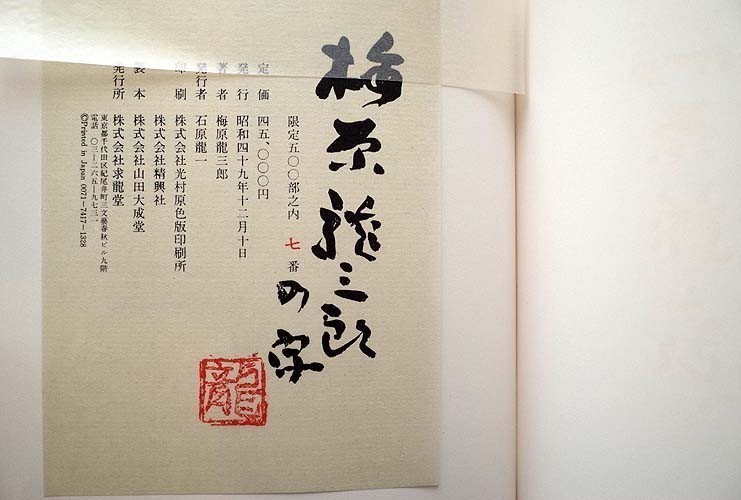 梅原龍三郎
の字
限定五〇〇部之内 七 番
定価 四五、〇〇〇円
発行 昭和四十九年十二月十日
著者 梅原龍三郎
発行者 石原龍一
印刷 株式会社光村原色版印刷所
株式会社精興社
製本 株式会社山田大成堂
発行所 株式会社求龍堂
東京都千代田区紀尾井町三文藝春秋ビル九階
電話 〇三―二六五―九七三一
©Printed in Japan 0071―7417―1328
龍